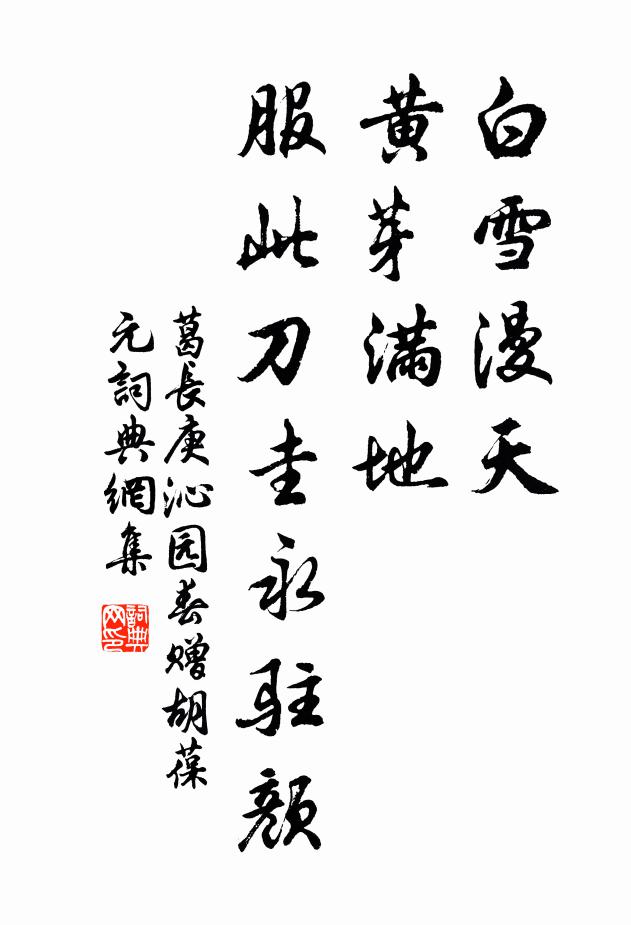 白雪漫天
黄芽滿地
服此刀圭永駐顏
葛長庚沁园春赠胡葆
元詞典網集
詞典
网印